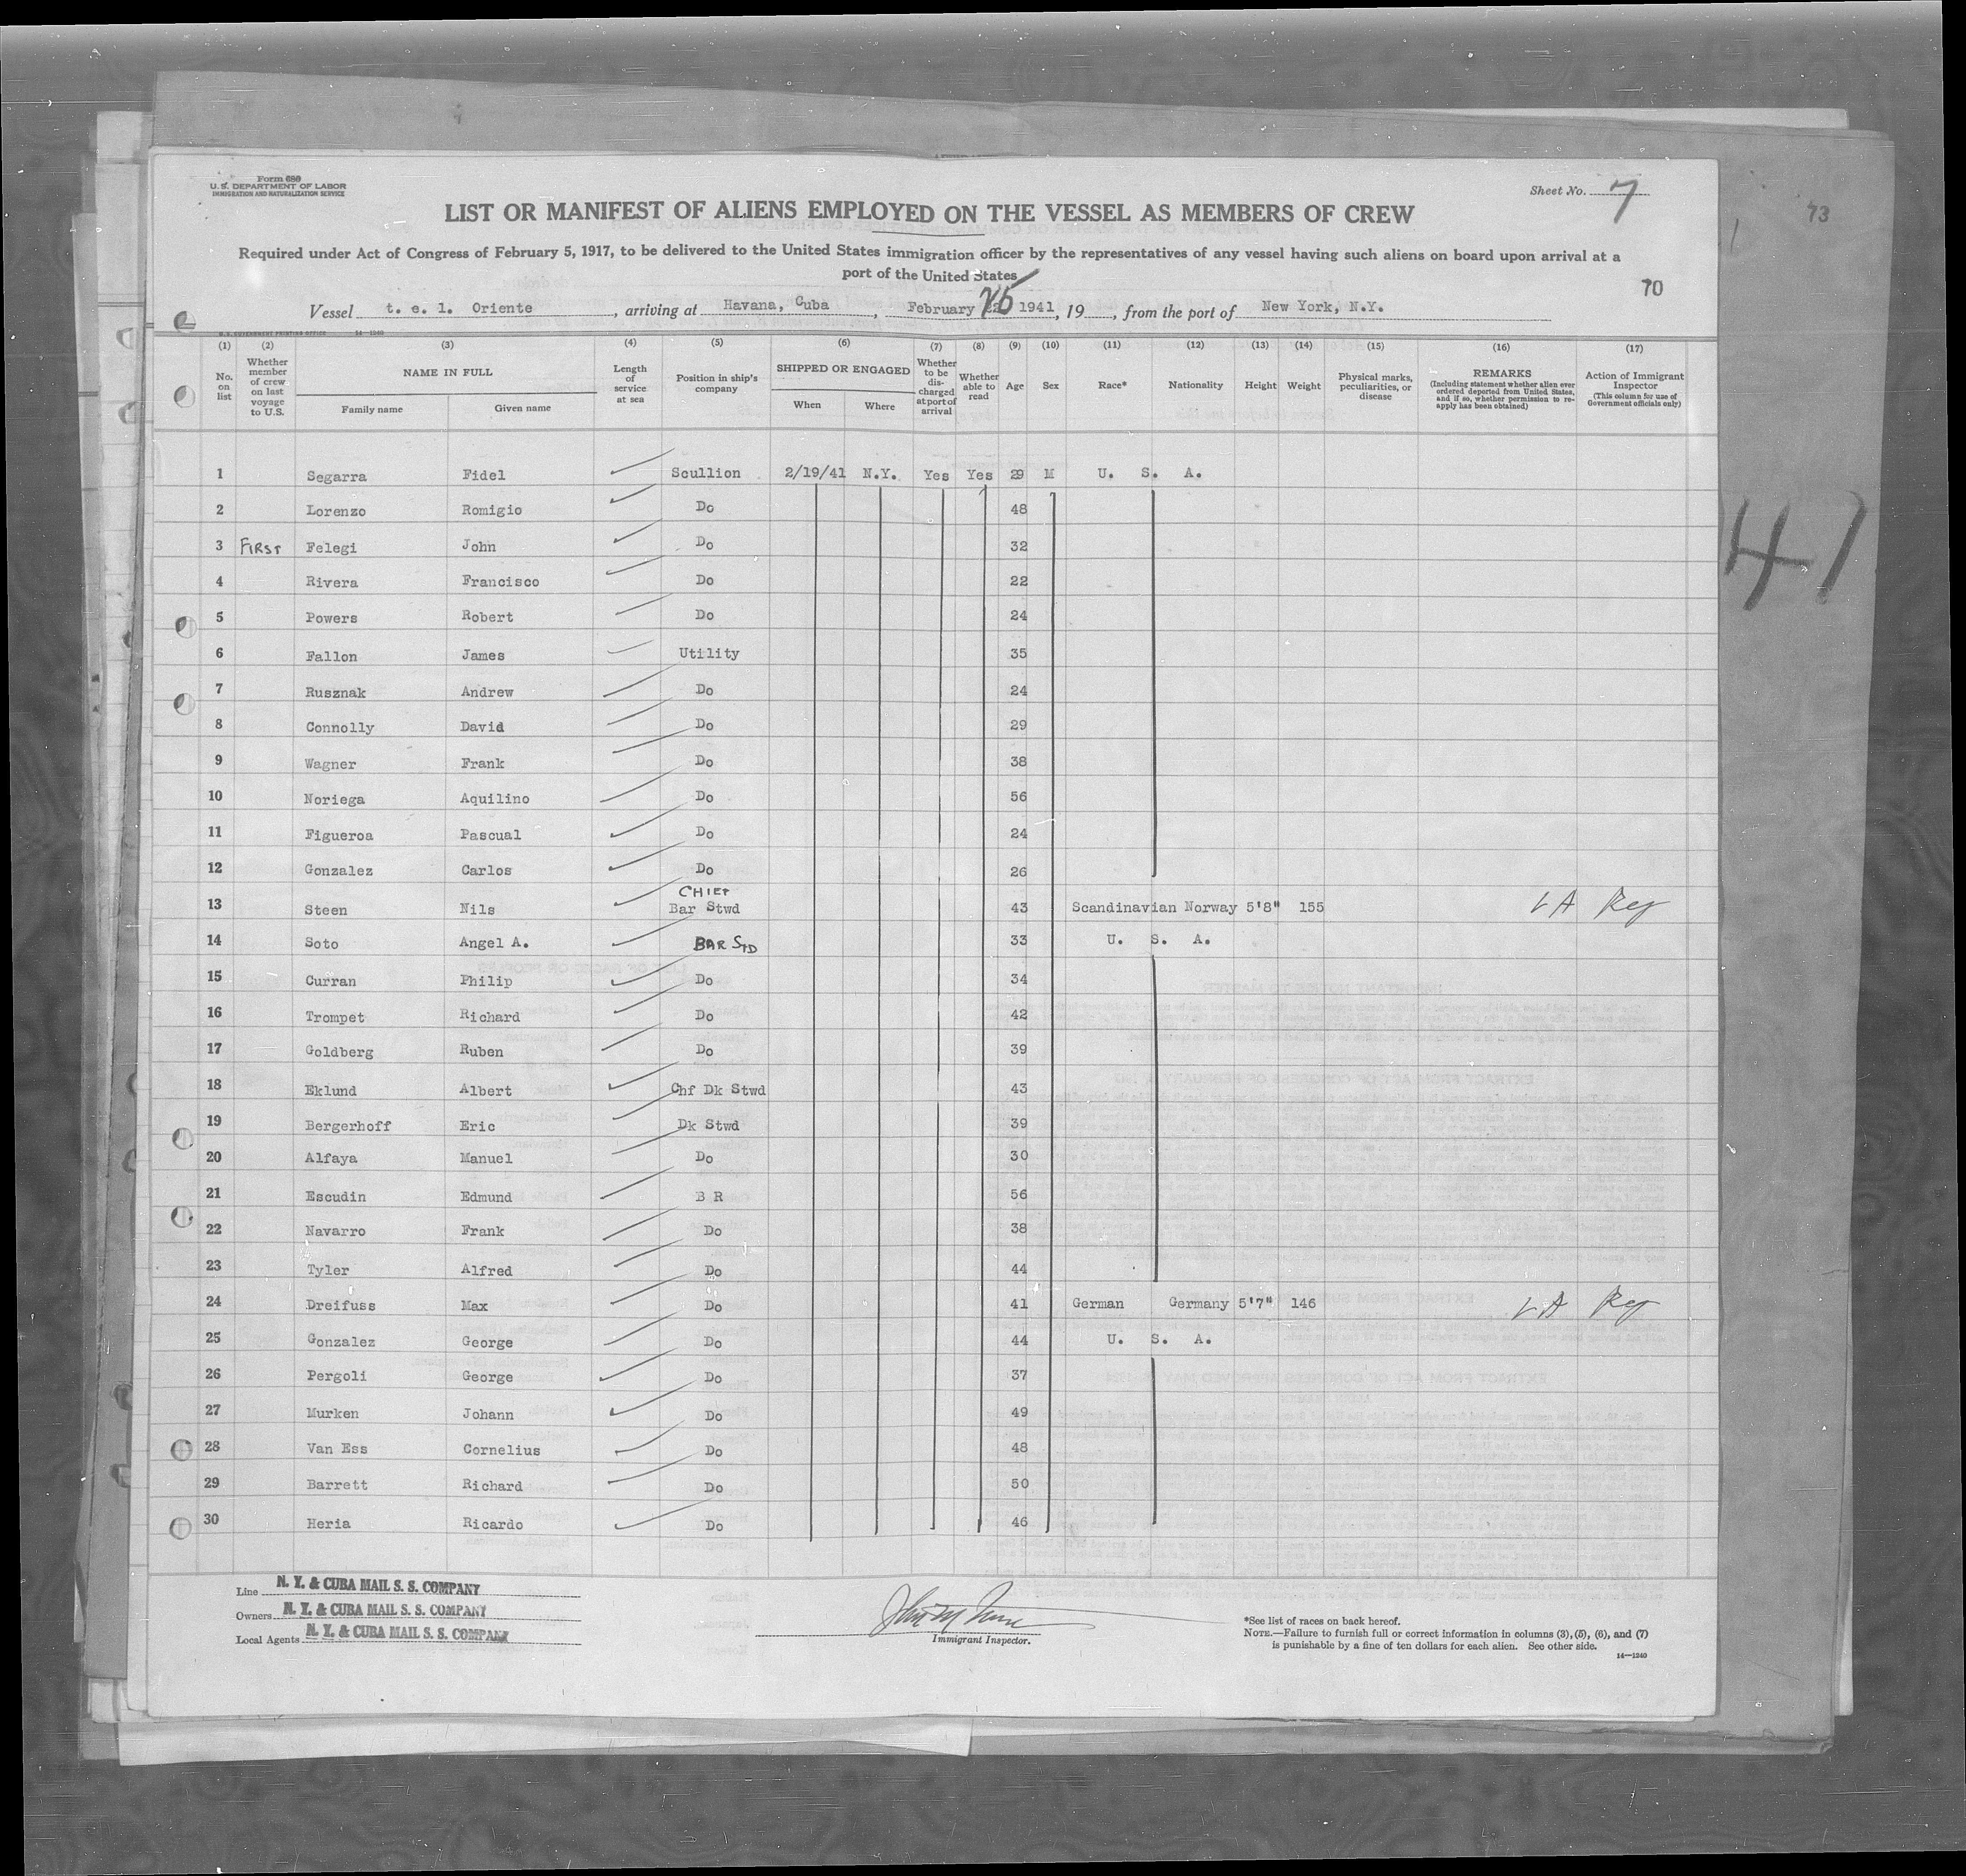 Form 680
U. S. DEPARTMENT OF LABOR
IMMIGRATION AND NATURALIZATION SERVICE
Sheet No. 7
73
LIST OR MANIFEST OF ALIENS EMPLOYED ON THE VESSEL AS MEMBERS OF CREW
Required under Act of Congress of February 5, 1917, to be delivered to the United States immigration officer by the representatives of any vessel having such aliens on board upon arrival at a
port of the United States
70
Vessel t. e. l. Oriente, arriving at Havana, Cuba, February 25 1941, 19, from the port of New York, N.Y.
U. S. GOVERNMENT PRINTING OFFICE 14—1240
(1) (2) (3) (4) (5) (6) (7) (8) (9) (10) (11) (12) (13) (14) (15) (16) (17)
No. on list Whether member of crew on last voyage to U.S. NAME IN FULL Family name Given name Length of service at sea Position in ship's company SHIPPED OR ENGAGED When Where Whether to be discharged at port of arrival Whether able to read Age Sex Race* Nationality Height Weight Physical marks, peculiarities, or disease REMARKS (Including statement whether alien ever ordered deported from United States, and if so, whether permission to re-apply has been obtained) Action of Immigrant Inspector (This column for use of Government officials only)
1 Segarra Fidel Scullion 2/19/41 N.Y. Yes Yes 29 M U. S. A.
2 Lorenzo Romigio Do 48
3 FIRST Felegi John Do 32
41
4 Rivera Francisco Do 22
5 Powers Robert Do 24
6 Fallon James Utility 35
7 Rusznak Andrew Do 24
8 Connolly David Do 29
9 Wagner Frank Do 38
10 Noriega Aquilino Do 56
11 Figueroa Pascual Do 24
12 Gonzalez Carlos Do 26
13 Steen Nils CHIEF Bar Stwd 43 Scandinavian Norway 5'8" 155 LA Reg
14 Soto Angel A. BAR STD 33 U. S. A.
15 Curran Philip Do 34
16 Trompet Richard Do 42
17 Goldberg Ruben Do 39
18 Eklund Albert Chf Dk Stwd 43
19 Bergerhoff Eric Dk Stwd 39
20 Alfaya Manuel Do 30
21 Escudin Edmund B R 56
22 Navarro Frank Do 38
23 Tyler Alfred Do 44
24 Dreifuss Max Do 41 German Germany 5'7" 146 LA Reg
25 Gonzalez George Do 44 U. S. A.
26 Pergoli George Do 37
27 Murken Johann Do 49
28 Van Ess Cornelius Do 48
29 Barrett Richard Do 50
30 Heria Ricardo Do 46
Line N. Y. & CUBA MAIL S. S. COMPANY
Owners N. Y. & CUBA MAIL S. S. COMPANY
Local Agents N. Y. & CUBA MAIL S. S. COMPANY
Immigrant Inspector.
*See list of races on back hereof.
NOTE.—Failure to furnish full or correct information in columns (3), (5), (6), and (7)
is punishable by a fine of ten dollars for each alien. See other side.
14—1240